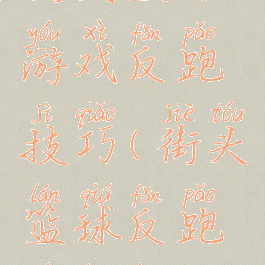 yóu xì fǎn pǎo
游戏反跑
jì qiǎo jiē tóu
技巧(街头
lán qiú fǎn pǎo
篮球反跑